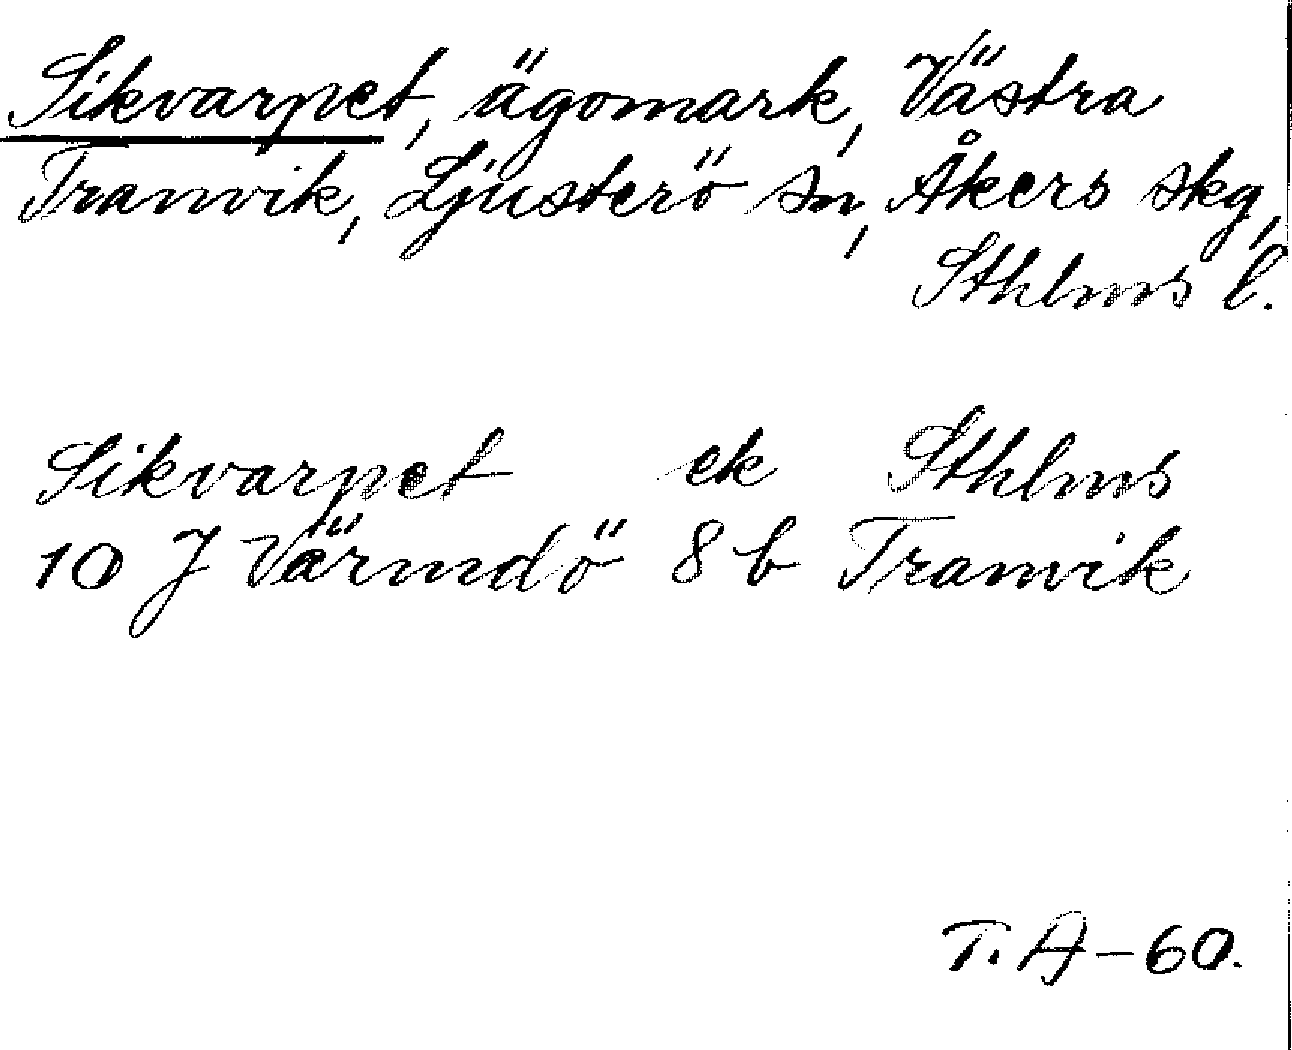 Sikvarpet, ägomark, Västra
Tranvik, Ljusterö sn, Åkers skg,
Sthlms l.
Sikvarpet ek Sthlms
10 J Värmdö 8 b Tranvik
T. A-60.